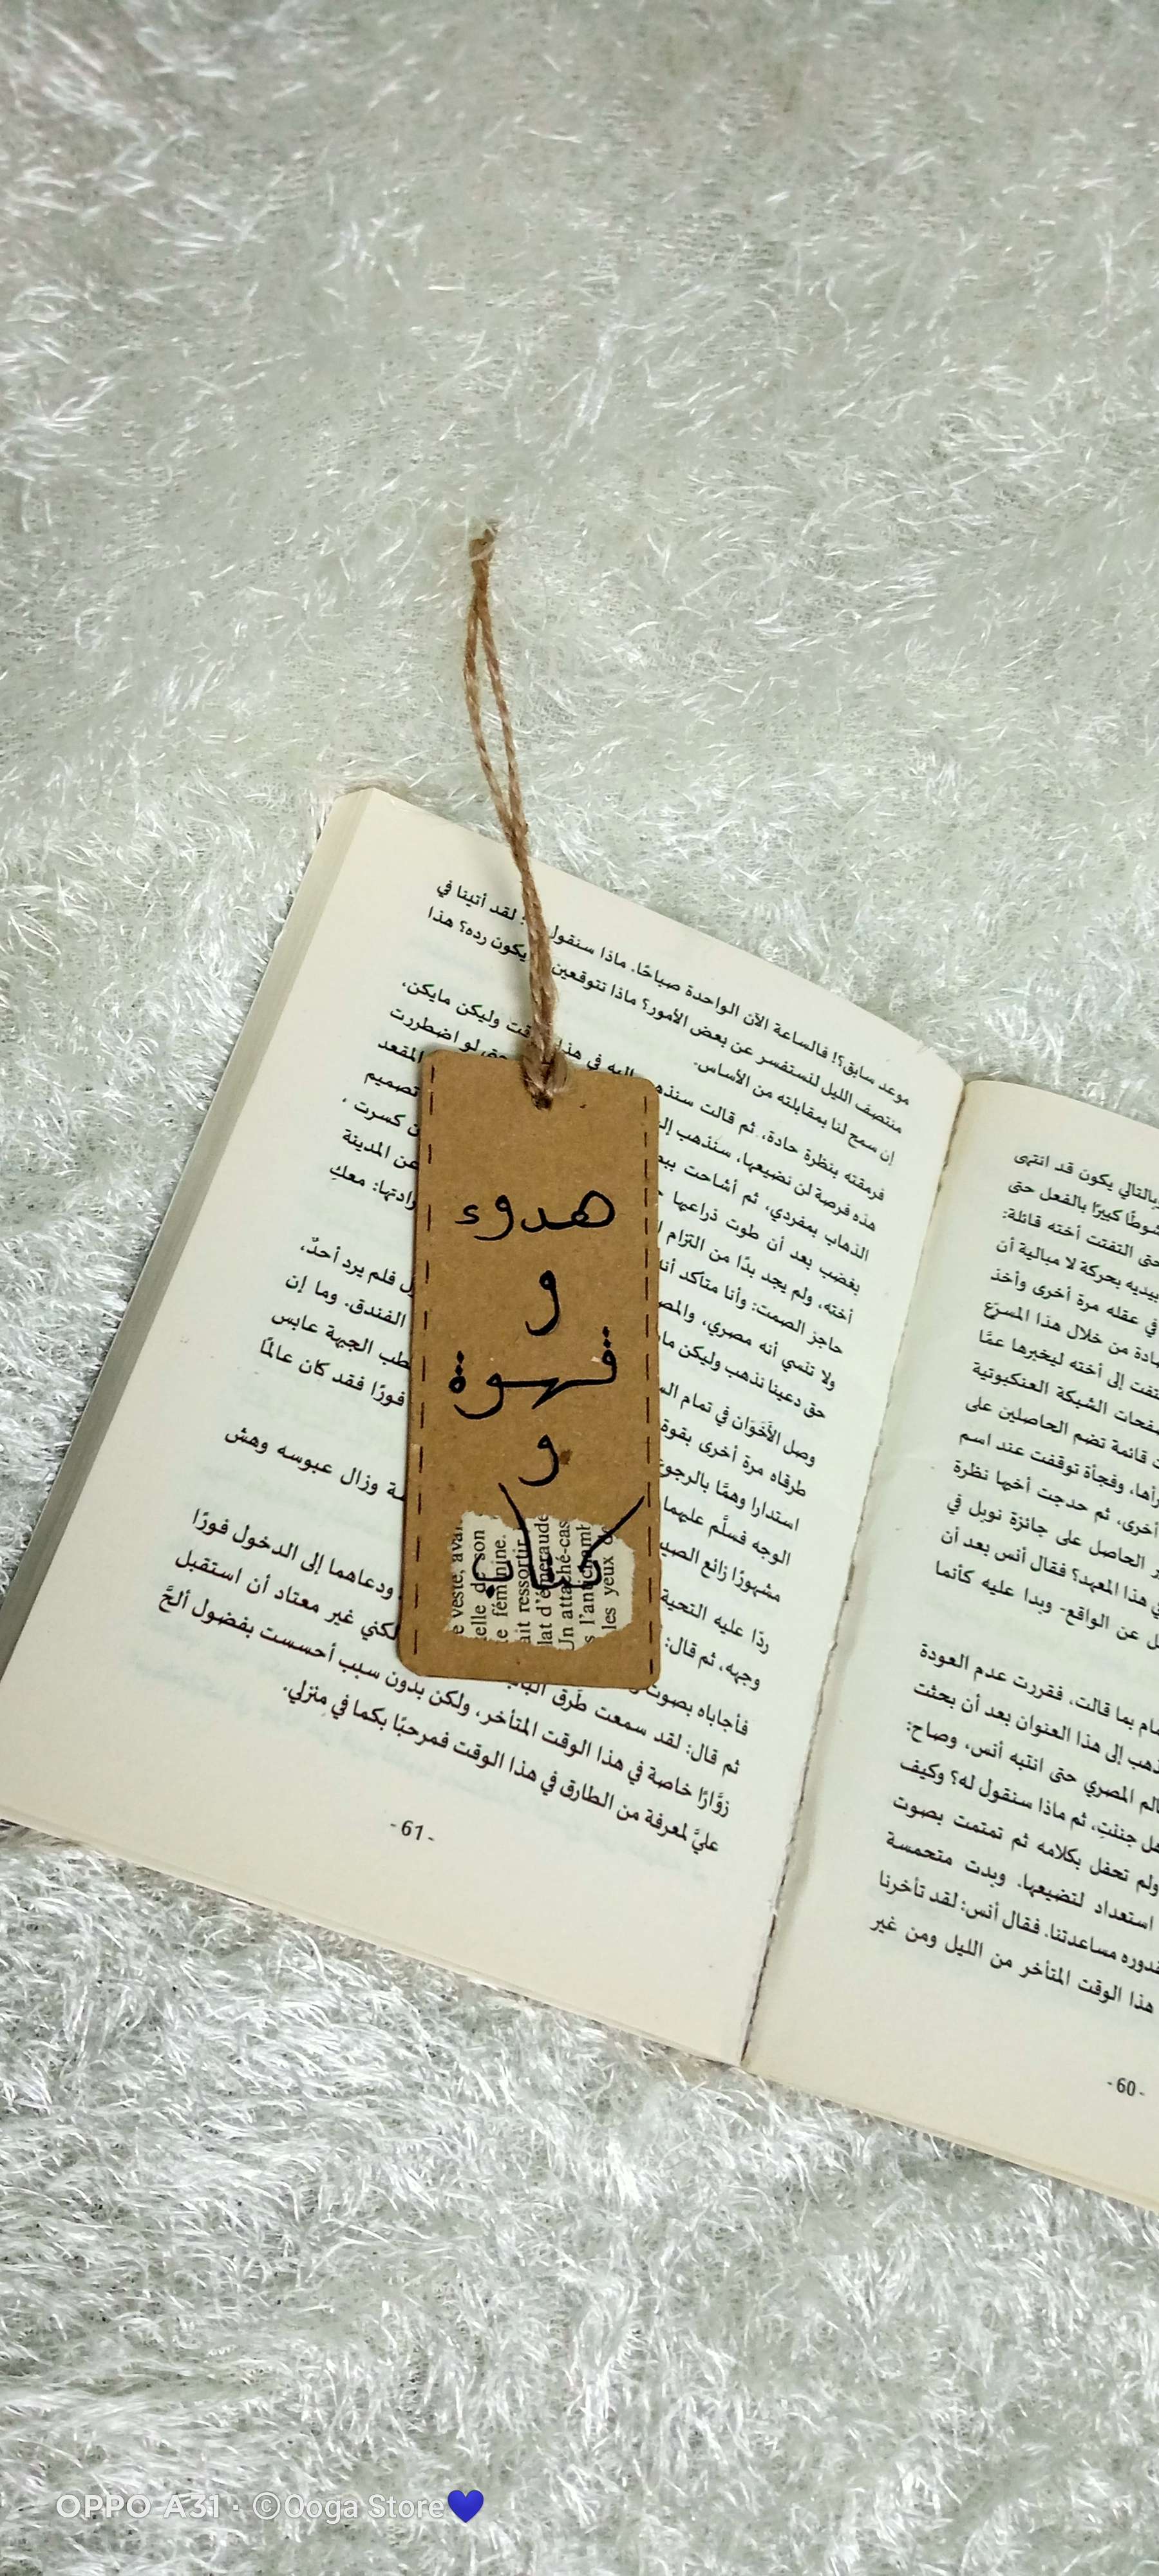 هدوء
و
قهوة
و
كتاب
e veste, avai
elle de son
e féminine.
ait ressortir
lat d'émeraude
Un attaché-cas
s l'antichamb
les yeux
موعد سابق؟! فالساعة الآن الواحدة صباحًا. ماذا سنقول لقد أتينا في
منتصف الليل لنستفسر عن بعض الأمور؟ ماذا تتوقعين يكون رده؟ هذا
إن سمح لنا بمقابلته من الأساس.
فرمقته بنظرة حادة، ثم قالت سنذهب إليه في هذا وليكن مايكن،
هذه فرصة لن نضيعها، سنذهب حتى لو اضطررت
الذهاب بمفردي، ثم أشاحت المقعد
بغضب بعد أن طوت ذراعيها تصميم
أخته، ولم يجد بدًا من التزام كسرت ،
حاجز الصمت: وأنا متأكد عن المدينة
ولا تنسي أنه مصري، رادتها: معكِ
حق دعينا نذهب وليكن
وصل الأَخَوَان في تمام فلم يرد أحدٌ،
طرقاه مرة أخرى بقوة الفندق. وما إن
استدارا وهمَّا بالرجوع الجبهة عابس
الوجه فسلَّم عليهما فورًا فقد كان عالمًا
مشهورًا زائع
ردَّا عليه التحية وزال عبوسه وهش
وجهه، ثم قال:
فأجاباه بصوت ودعاهما إلى الدخول فورًا
ثم قال: لقد سمعت طَرق لكني غير معتاد أن استقبل
زوَّارًا خاصة في هذا الوقت المتأخر، ولكن بدون سبب أحسست بفضول ألحَّ
عليَّ لمعرفة من الطارق في هذا الوقت فمرحبًا بكما في منزلي.
-61-
بالتالي يكون قد انتهى
شوطًا كبيرًا بالفعل حتى
حتى التفتت أخته قائلة:
بيديه بحركة لا مبالية أن
في عقله مرة أخرى وأخذ
من خلال هذا المسرّع
إلى أخته ليخبرها عمَّا
صفحات الشبكة العنكبوتية
قائمة تضم الحاصلين على
وفجأة توقفت عند اسم
أخرى، ثم حدجت أخيها نظرة
الحاصل على جائزة نوبل في
هذا المعهد؟ فقال أنس بعد أن
عن الواقع- وبدا عليه كأنما
بما قالت، فقررت عدم العودة
إلى هذا العنوان بعد أن بحثت
المصري حتى انتبه أنس، وصاح:
هل جننتِ، ثم ماذا سنقول له؟ وكيف
ولم تحفل بكلامه ثم تمتمت بصوت
استعداد لتضيعها. وبدت متحمسة
مساعدتنا. فقال أنس: لقد تأخرنا
هذا الوقت المتأخر من الليل ومن غير
-60-
OPPO A31 · ©Ooga Store💙